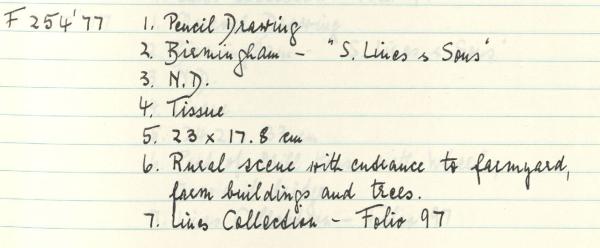 F 254'77 1. Pencil Drawing
2. Birmingham - "S. Lines & Sons"
3. N.D.
4. Tissue
5. 23 x 17.8 cm
6. Rural scene with entrance to farmyard,
farm buildings and trees.
7. Lines Collection - Folio 97